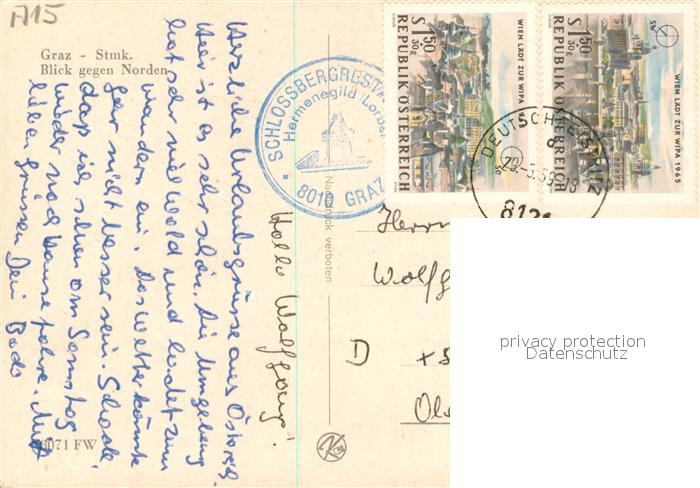 A15
Graz - Stmk.
Blick gegen Norden
Hallo Wolfgang!
Herzliche Urlaubsgrüsse aus Österreich.
Hier ist es sehr schön. Die Umgebung
hat sehr viel Wald und ladet zum
wandern ein. Das Wetter könnte
gar nicht besser sein. Schade,
dass ich schon am Samstag
wieder nach Hause fahre. Mit
lieben Grüssen Dein Bodo
8071 FW
SCHLOSSBERGREST
Hermenegild Lorber
8010 GRAZ
Nachdruck verboten
S 1.50
30g
REPUBLIK ÖSTERREICH
WIEN LÄDT ZUR WIPA 1965
S 1.50
30g
REPUBLIK ÖSTERREICH
WIEN LÄDT ZUR WIPA 1965
SW
DEUTSCHFEISTRITZ
Herrn
Wolfg
D
Ols
privacy protection
Datenschutz